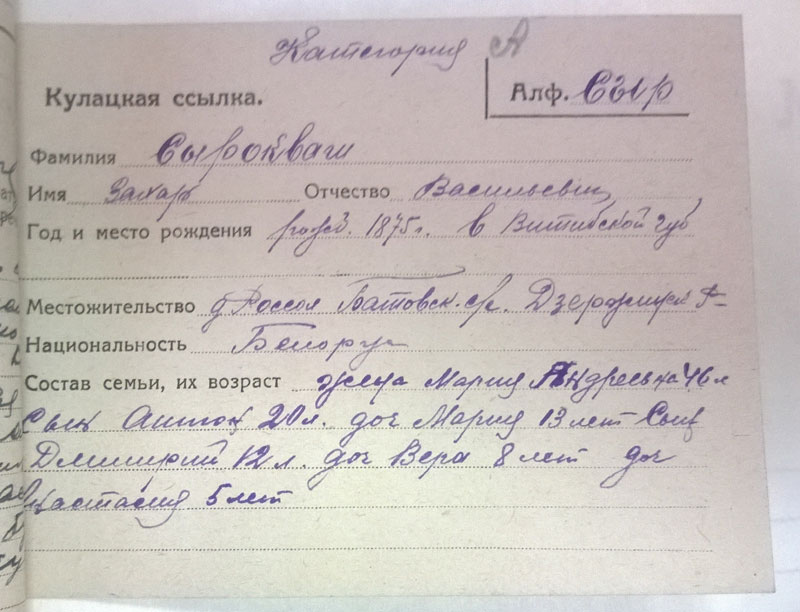 Категория А
Кулацкая ссылка.
Алф. Сыр
Фамилия Сырокваш
Имя Захар Отчество Васильевич
Год и место рождения рожд. 1875г. в Витибской губ
Местожительство д Россол с/с. Дзержинск
Национальность Белорус
Состав семьи, их возраст жена Мария Андреевна 46 л
Сын Антон 20 л. доч Мария 13 лет Сын
Дмитрий 12 л. доч Вера 8 лет доч
Настасия 5 лет